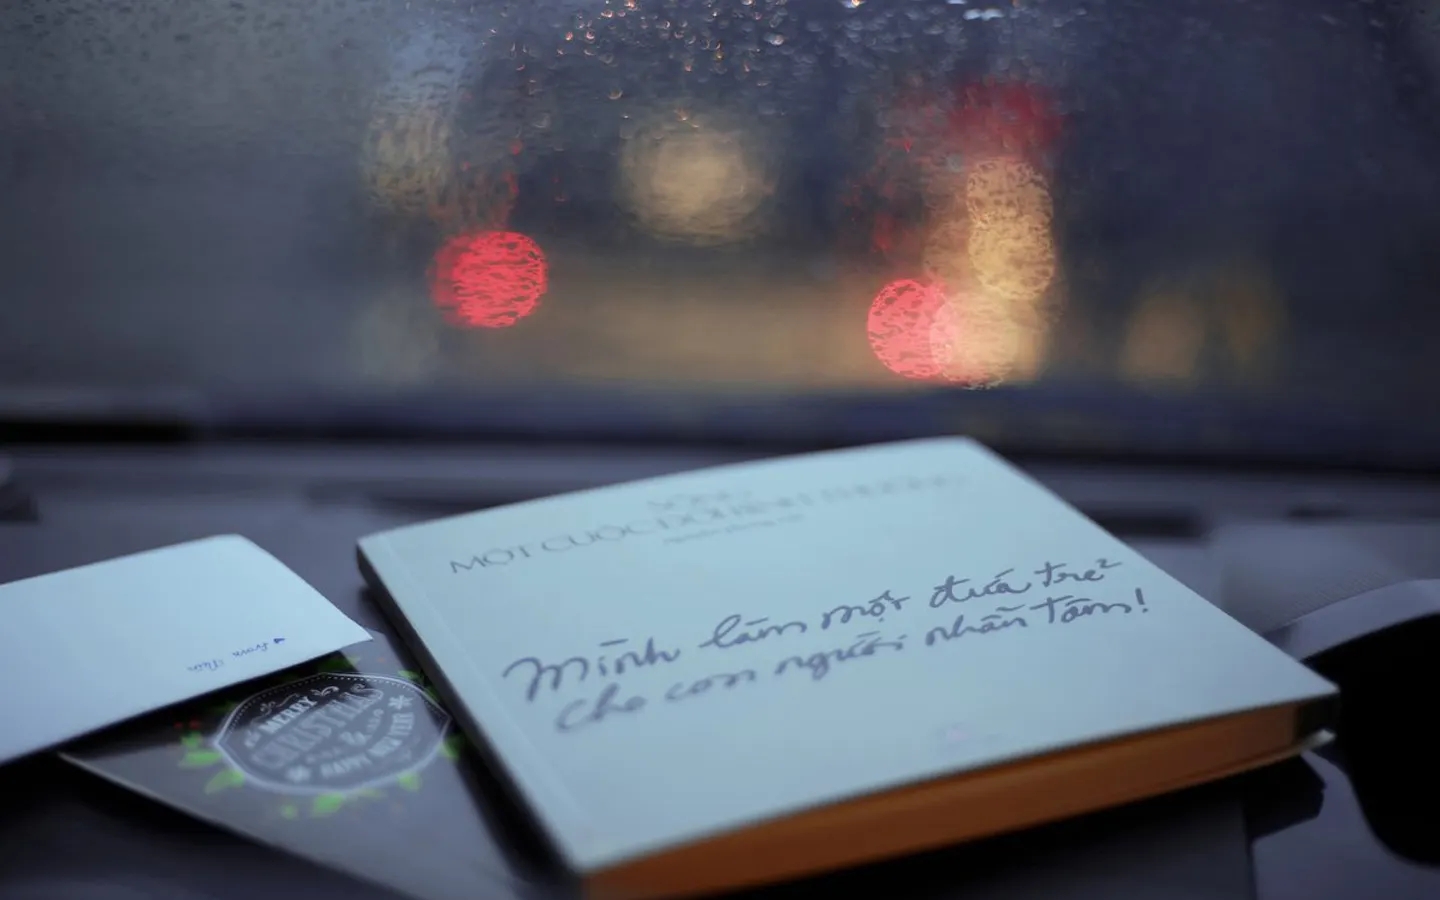 MỘT CUỘC ĐỜI BÌNH THƯỜNG
Mình làm một đứa trẻ
cho con người nhẫn tâm!
from
MERRY
CHRISTMAS
&
HAPPY NEW YEAR